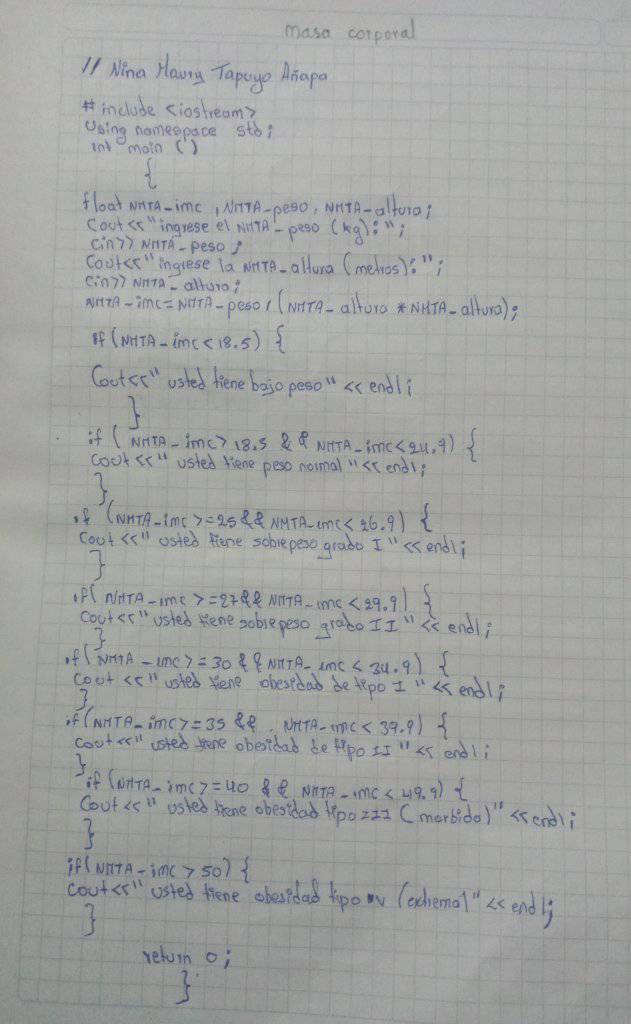 masa corporal
// Nina Maury Tapuyo Añapa
# include <iostream>
Using namespace std;
int main ()
{
float NMTA_imc, NMTA_peso, NMTA_altura;
Cout<<"ingrese el NMTA_peso (kg):";
cin>> NMTA_peso;
Cout<<"ingrese la NMTA_altura (metros):";
cin>> NMTA_altura;
NMTA_imc=NMTA_peso/(NMTA_altura *NMTA_altura);
if (NMTA_imc<18.5) {
Cout<<" usted tiene bajo peso"<<endl;
}
if ( NMTA_imc> 18.5 && NMTA_imc<24.9) {
cout <<" usted tiene peso normal "<<endl;
}
if (NMTA_imc >=25&&NMTA_imc< 26.9) {
Cout <<" usted tiene sobrepeso grado I "<<endl;
}
if( NMTA_imc >=27&& NMTA_imc <29.9) {
Cout<<" usted tiene sobrepeso grado II "<< endl;
}
if( NMTA_imc >=30 &&NMTA_imc < 34.9) {
Cout <<"usted tiene obesidad de tipo I "<< endl;
}
if(NMTA_imc>=35 && NMTA_imc < 39.9) {
cout<<" usted tiene obesidad de tipo II "<< endl;
}
if (NMTA_imc>=40 && NMTA_imc < 49.9) {
Cout <<" usted tiene obesidad tipo III (morbida)"<<endl;
}
if(NMTA_imc > 50) {
Cout<<" usted tiene obesidad tipo (extrema)"<<endl;
}
return 0;
}